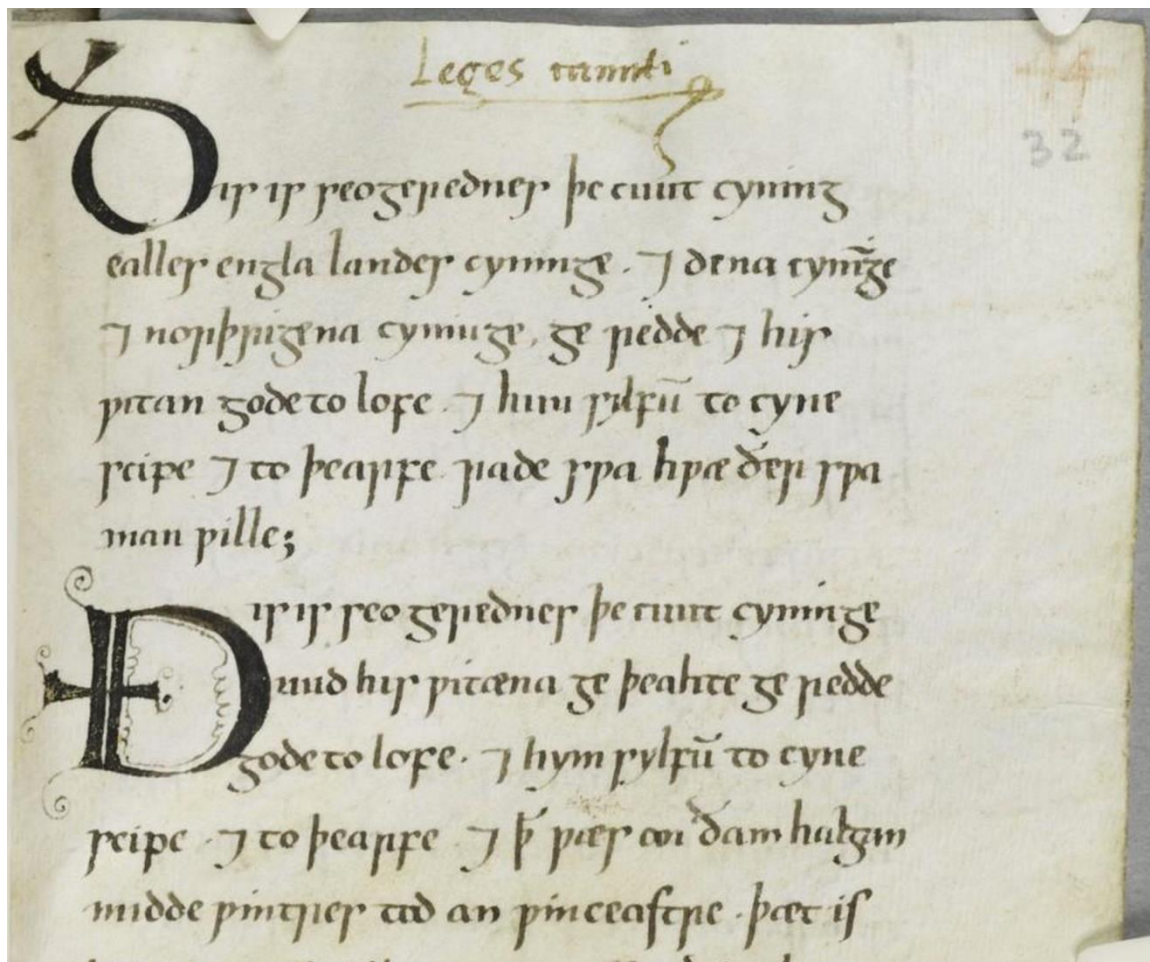 Leges canuti
32
Ðis is seo gerednes þe cnut cyning
ealles engla landes cyninge. ⁊ dena cynı̄ge
⁊ norþrigena cyninge, ge redde ⁊ his
ƿitan gode to lofe. ⁊ him sylfū to cyne
scipe ⁊ to þearfe. rade sƿa hƿæ ðer sƿa
man ƿille;
Ðis is seo gerednes þe cnut cyninge
mid his ƿitæna ge þeahte ge redde
gode to lofe. ⁊ hym sylfū to cyne
scipe. ⁊ to þearfe. ⁊ ꝥ ƿæs on ðam halgum
midde ƿintres tid on ƿinceastre. þæt is